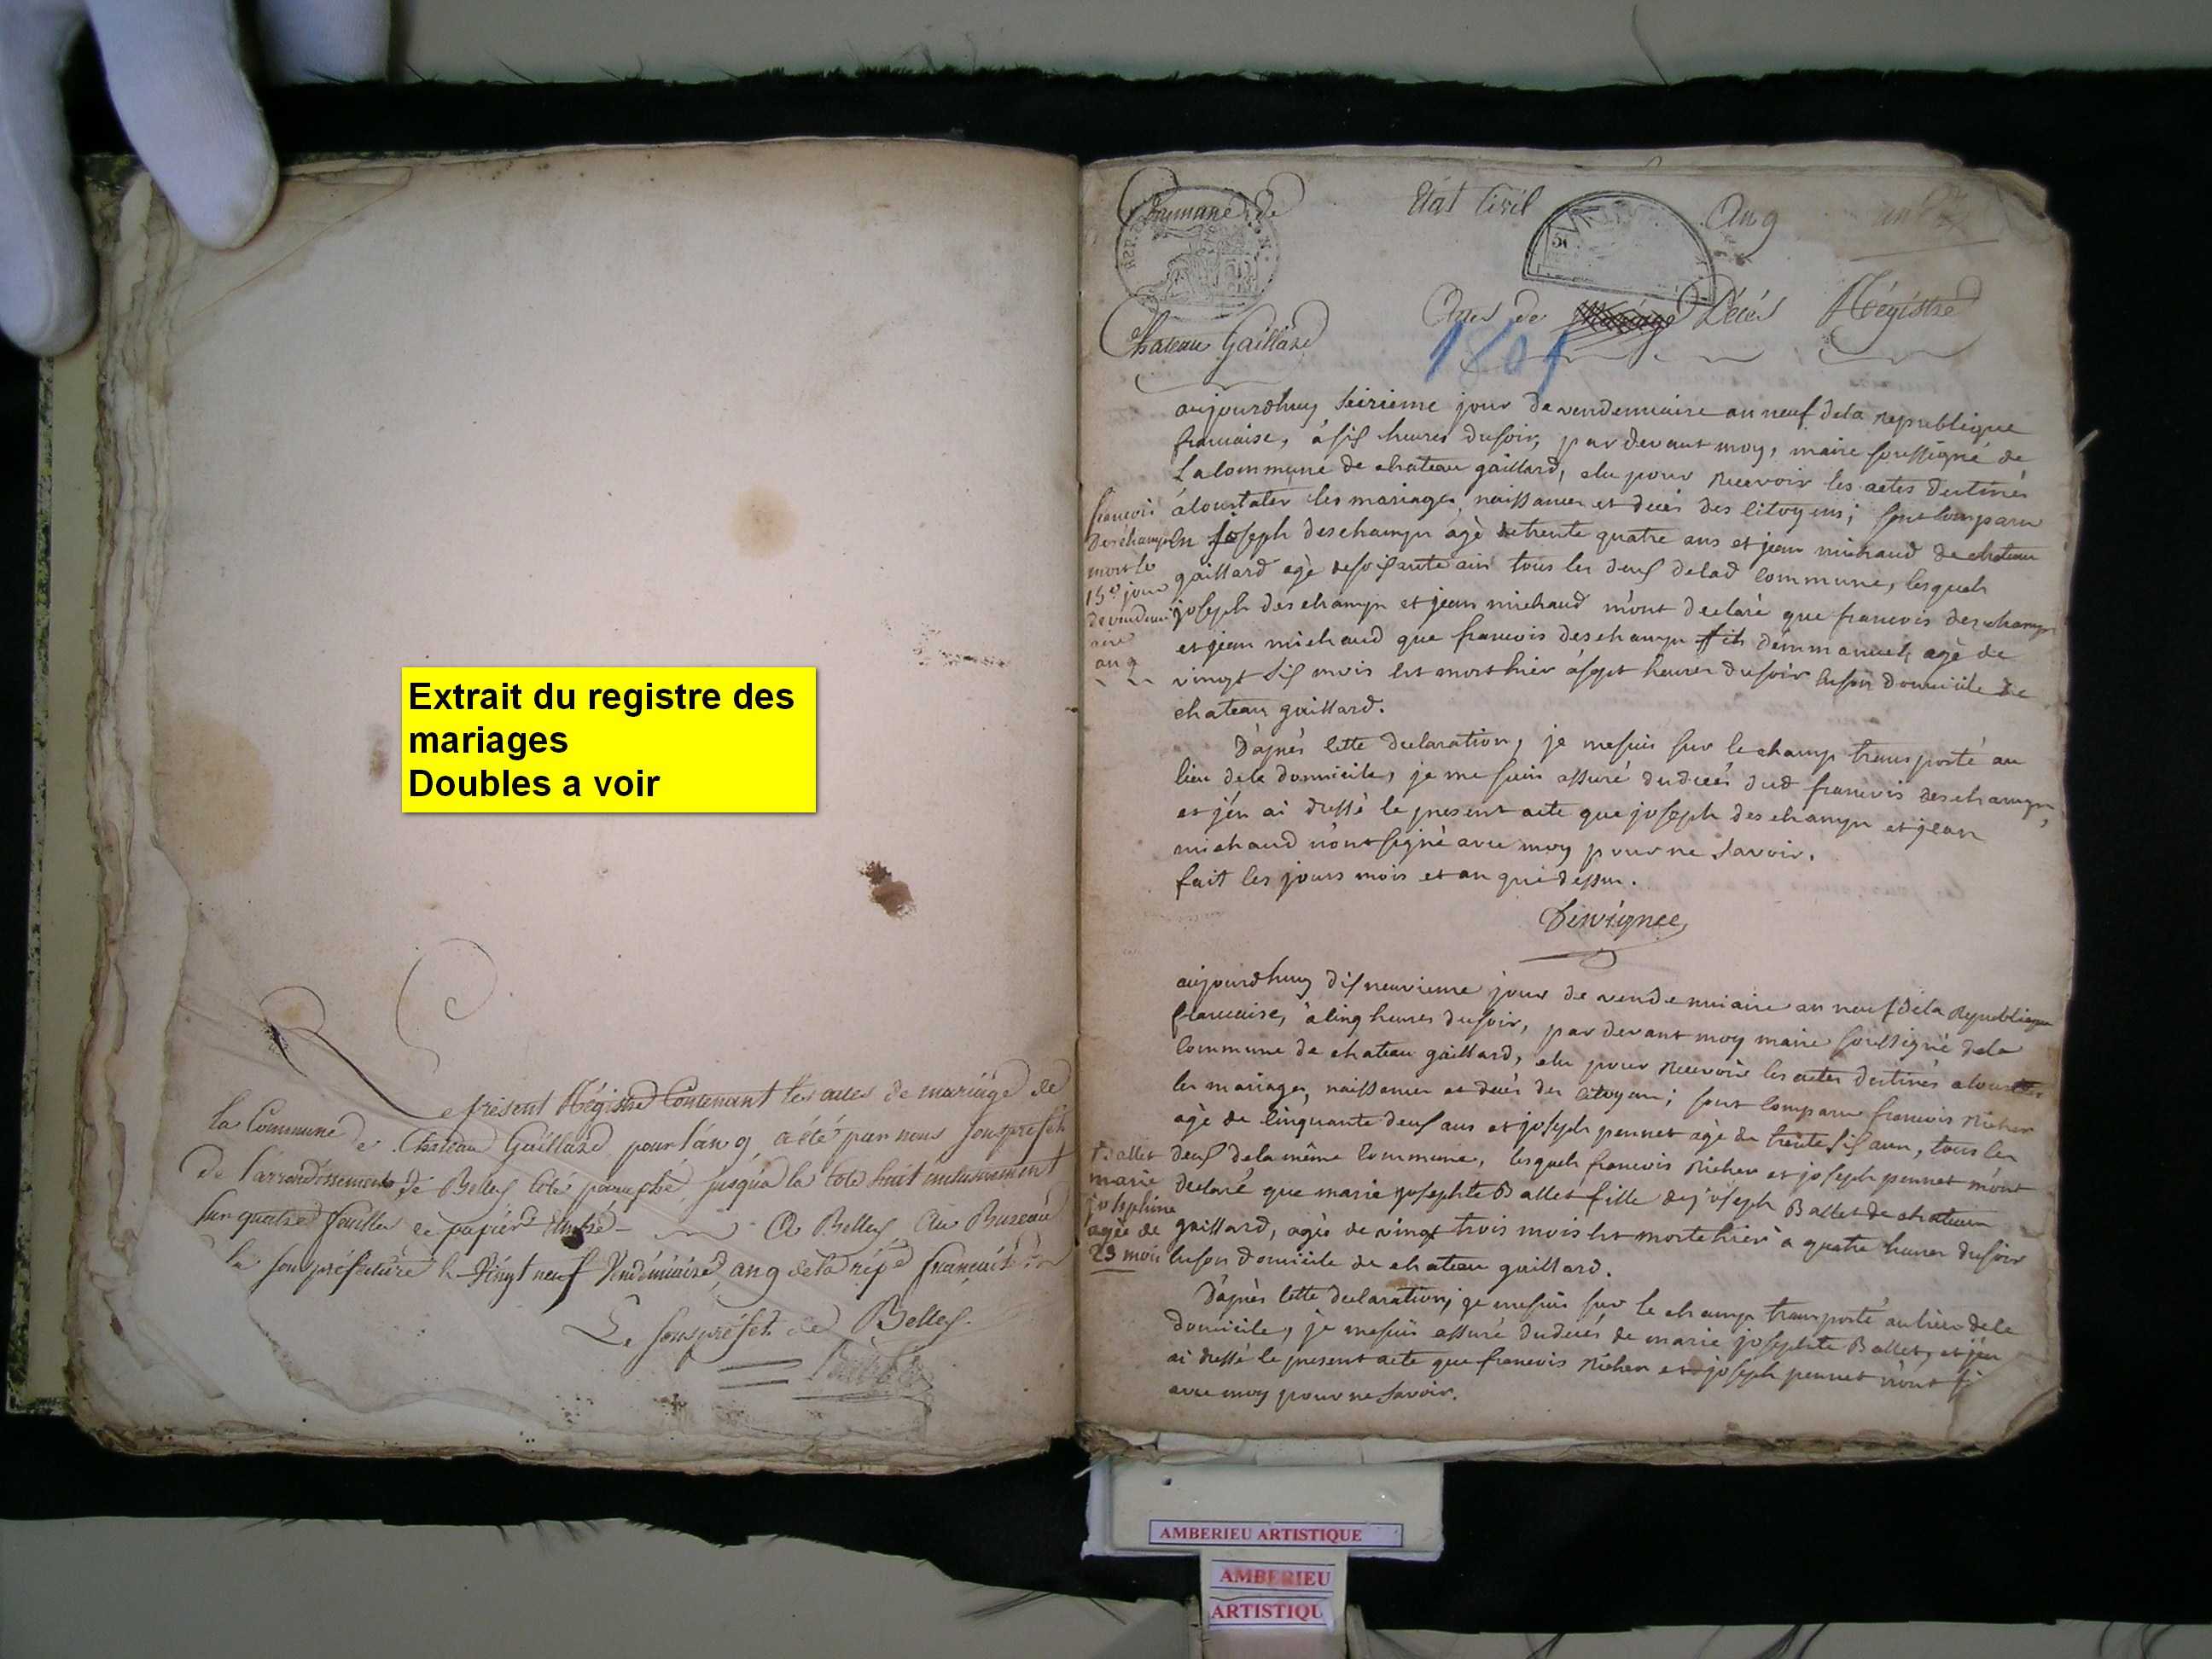 Extrait du registre des
mariages
Doubles a voir
Le présent Régistre Contenant les actes de mariage de
la Commune de Chateau Gaillard pour l'an 9 a été par nous souspréfet
de l'arrondissement de Belley coté paraphé jusqua la cote huit inclusivement
sur quatre feuilles de papier timbré A Belley Au Bureau
de la souspréfecture le Vingt neuf Vendémiaire an 9 de la rép.e française
Le souspréfet de Belley
Commune de Etat Civil An 9
Chateau Gaillard Actes de Décés Régistre
1801
aujourdhuy seizieme jour de vendemiaire an neuf dela republique
francaise, à six heures dusoir, par devant moy, maire soussigné de
la commune de chateau gaillard, elu pour recevoir les actes destinés
à constater les mariages, naissances et decés des citoyens; sont comparu
en joseph deschamps agè de trente quatre ans et jean michaud de chateau
gaillard agè de soixante ans tous les deux delad commune, lesquels
joseph deschamps et jean michaud m'ont declaré que francois deschamps
et jean michaud que francois deschamps fils d'emmanuel, agè de
vingt six mois est mort hier à sept heures dusoir en son domicile de
chateau gaillard.
francois
Deschamps
mort le
15e jour
de vendemi
aire
an 9
D'après cette declaration, je me suis sur le champ transporté au
lieu de le domicile, je me suis assuré du decés dud francois deschamps,
et j'en ai dressé le present acte que joseph deschamps et jean
michaud n'ont signé avec moy pour ne savoir.
fait les jours mois et an que dessus.
aujourdhuy dix neuvieme jour de vendemiaire an neuf dela Republique
francaise, à cinq heures dusoir, par devant moy maire soussigné dela
commune de chateau gaillard, elu pour recevoir les actes destinés a constater
les mariages, naissances et decés des citoyens; sont comparu francois Richer
agè de cinquante deux ans et joseph pennet agè de trente six ans, tous les
deux dela même commune, lesquels francois Richer et joseph pennet m'ont
declaré que marie josephte Ballet fille de joseph Ballet de chateau
gaillard, agèe de vingt trois mois est morte hier à quatre heures dusoir
en son domicile de chateau gaillard.
Ballet
marie
josephine
agée de
23 mois
D'après cette declaration, je me suis sur le champ transporté au lieu dele
domicile, je me suis assuré du decés de marie josephte Ballet, et j'en
ai dressé le present acte que francois Richer et joseph pennet n'ont si
avec moy pour ne savoir.
AMBERIEU ARTISTIQUE
AMBERIEU
ARTISTIQU